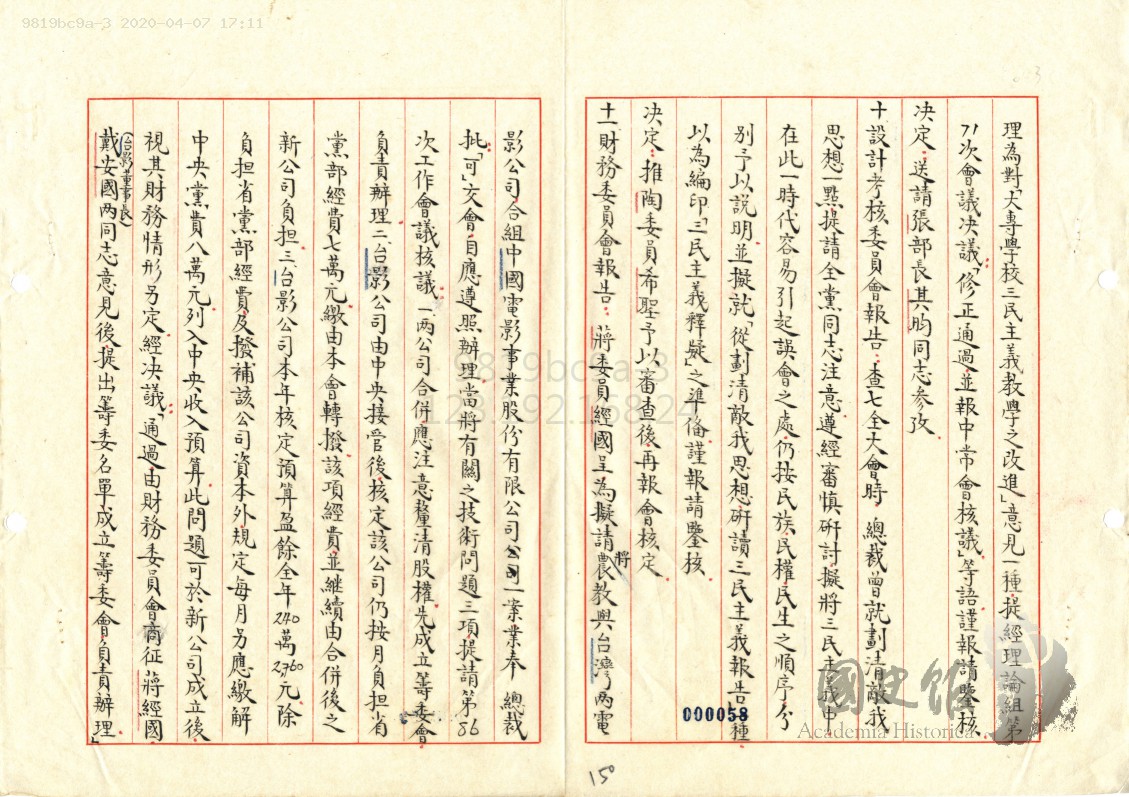 9819bc9a-3 2020-04-07 17:11
理為對「大專學校三民主義教學之改進」意見一種，提經理論組第
71次會議決議「修正通過，並報中常會核議」等語，謹報請鑒核
決定：送請張部長其昀同志參攷
十、設計考核委員會報告：查七全大會時　總裁曾就劃清敵我
思想一點提請全黨同志注意，遵經審慎研討，擬將三民主義中
在此一時代容易引起誤會之處，仍按民族、民權、民生之順序，分
別予以說明，並擬就「從劃清敵我思想研讀三民主義報告」一種
以為編印「三民主義釋疑」之準備，謹報請鑒核
決定：推陶委員希聖予以審查後，再報會核定
十一、財務委員會報告：蔣委員經國呈為擬請將農教與台灣兩電
影公司合組中國電影事業股份有限公司一案，業奉　總裁
批「可」交會，自應遵照辦理，當將有關之技術問題三項提請第86
次工作會議核議，一、兩公司合併應注意釐清股權，先成立籌委會
負責辦理，二、台影公司由中央接管後，核定該公司仍按月負担省
黨部經費七萬元，繳由本會轉撥，該項經費並繼續由合併後之
新公司負担，三、台影公司本年核定預算盈餘全年240萬2760元，除
負担省黨部經費及撥補該公司資本外，規定每月另應繳解
中央黨費八萬元，列入中央收入預算，此問題可於新公司成立後
視其財務情形另定，經決議「通過，由財務委員會商征蔣經國
戴安國(台影董事長)兩同志意見後，提出籌委名單，成立籌委會負責辦理」
000058
150
9819bc9a-3
國史館
Academia Historica